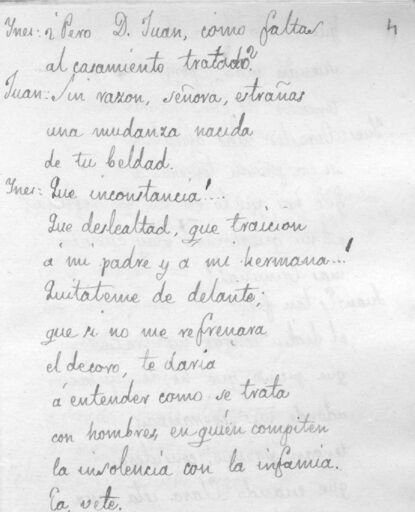 Ines: ¿Pero D. Juan, como faltas 4
al casamiento tratado?
Juan: Sin razon, señora, estrañas
una mudanza nacida
de tu beldad.
Ines: Que inconstancia!...
Que deslealtad, que traicion
á mi padre y á mi hermana...!
Quitateme de delante;
que si no me refrenara
el decoro, te daria
á entender como se trata
con hombres, en quién compiten
la insolencia con la infamia.
Ea, vete.